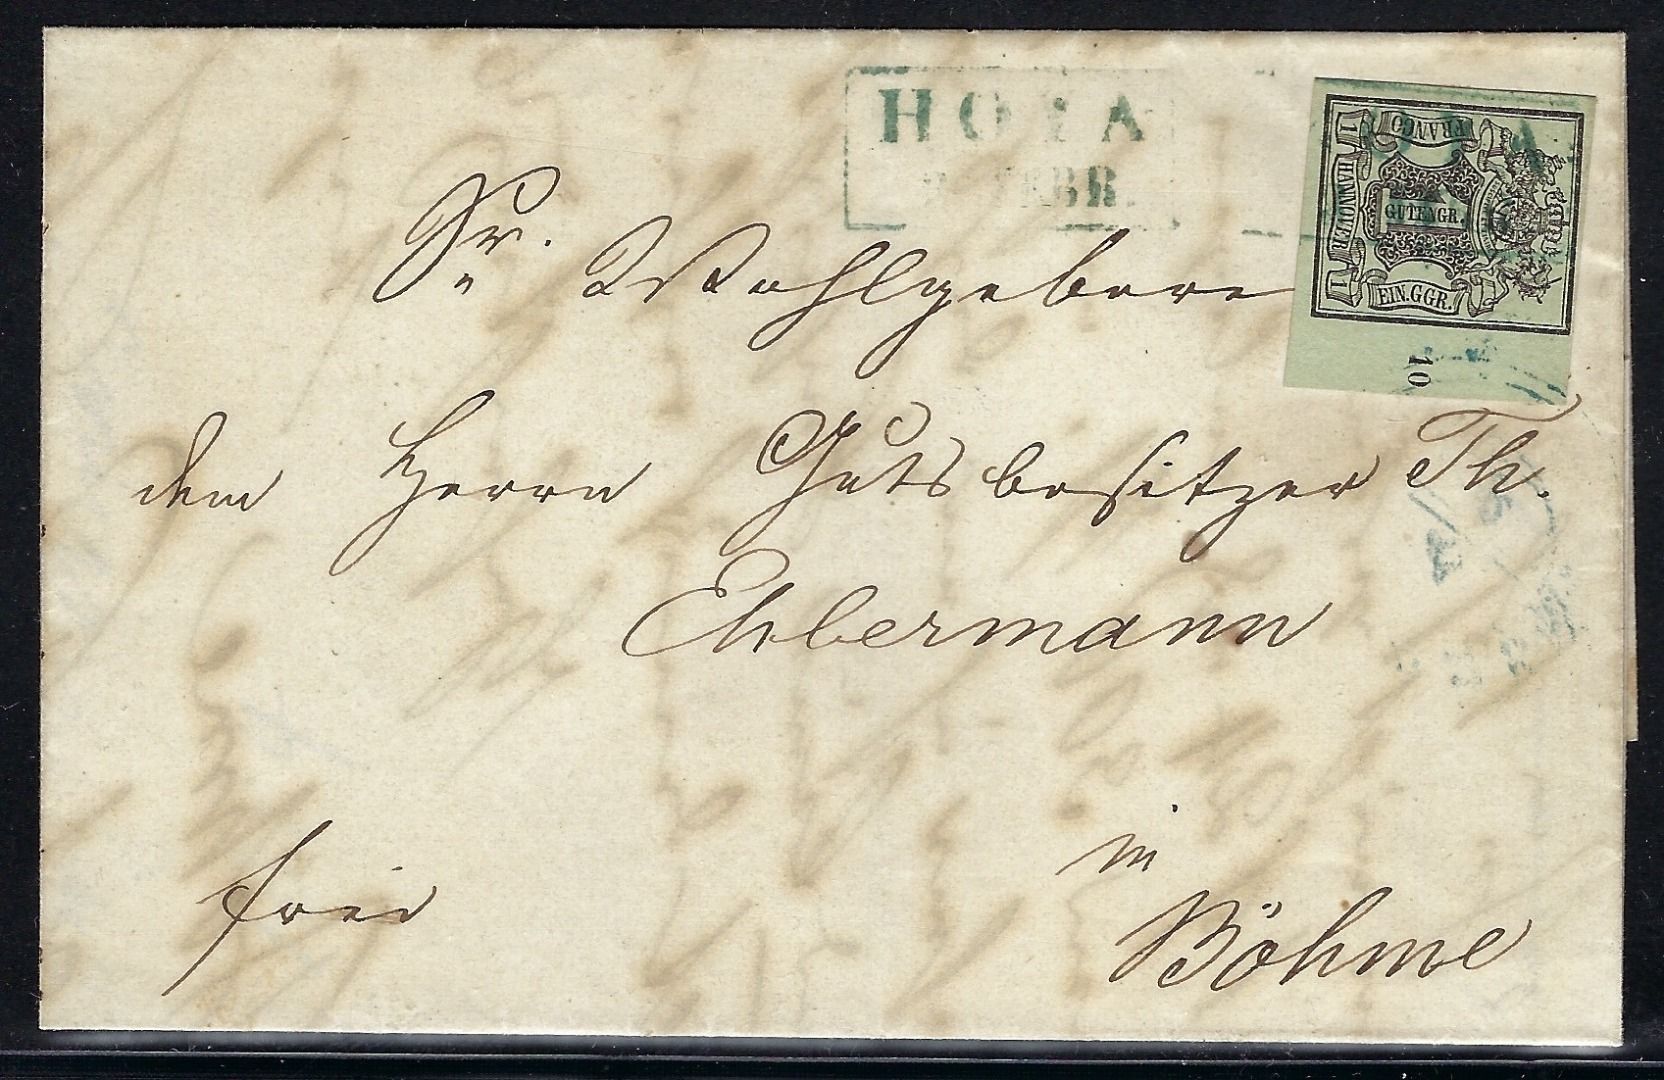 HOYA
FEBR.
FRANCO
1 HANNOVER 1
GUTENGR.
EIN.GGR.
10
Sr. Wohlgeboren
dem Herrn Gutsbesitzer Th.
in
Böhme
frei